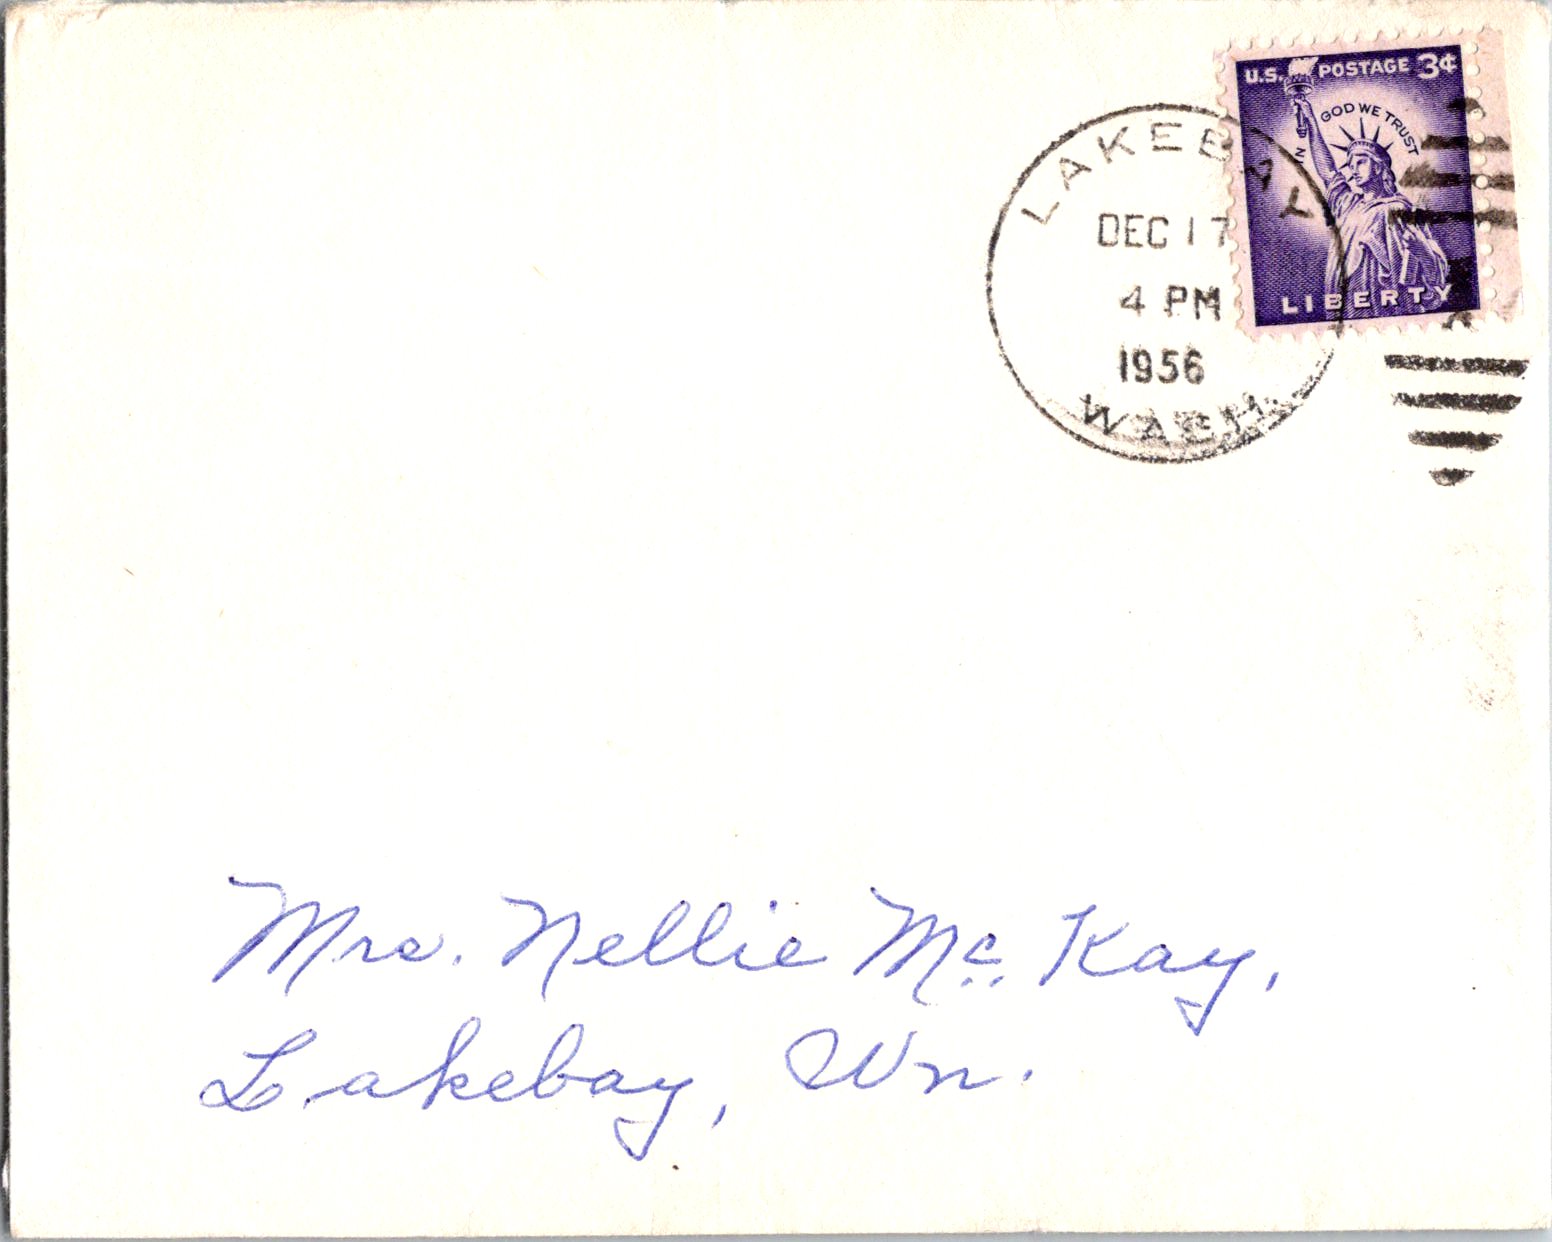 U.S. POSTAGE 3¢
IN GOD WE TRUST
LIBERTY
LAKEBAY
DEC 17
4 PM
1956
WASH.
Mrs. Nellie Mc. Kay,
Lakebay, Wn.